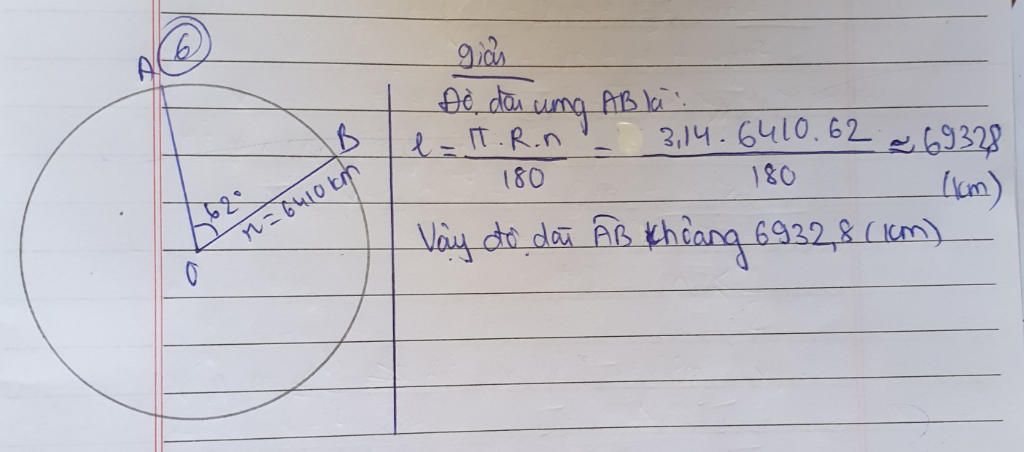 6
A
B
62°
r = 6410 km
O
giải
Độ dài cung AB là:
l = π.R.n / 180 = 3,14.6410.62 / 180 ≈ 6932,8 (km)
Vậy độ dài AB khoảng 6932,8 (km)